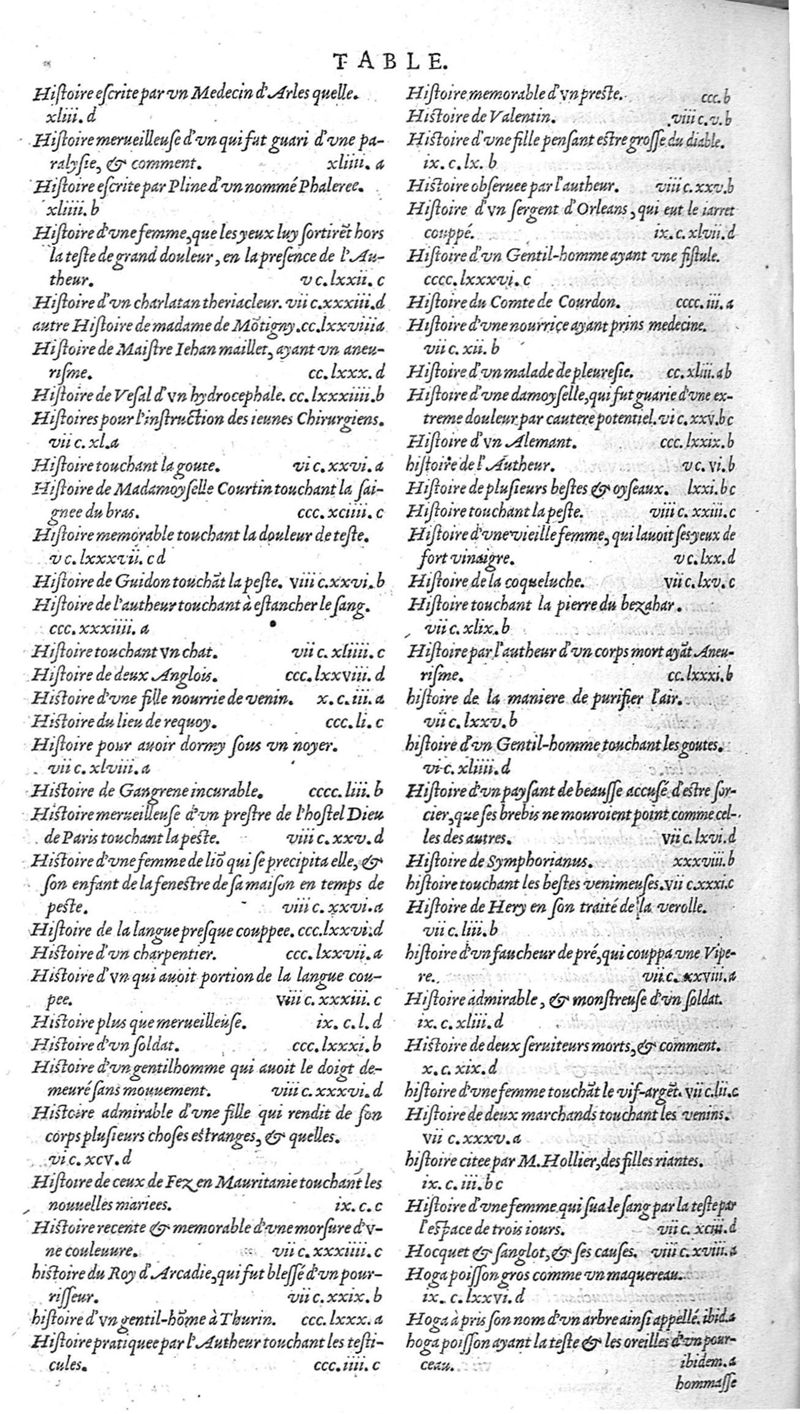 TABLE.
Hiſtoire eſcrite par vn Medecin d'Arles quelle.
xliii. d
Hiſtoire merueilleuſe d'vn qui fut guari d'vne pa-
ralyſie, & comment. xliiii. a
Hiſtoire eſcrite par Pline d'vn nommé Phaleree.
xliiii. b
Hiſtoire d'vne femme, que les yeux luy ſortirẽt hors
la teſte de grand douleur, en la preſence de l'Au-
theur. v c. lxxii. c
Hiſtoire d'vn charlatan theriacleur. vii c. xxxiii. d
autre Hiſtoire de madame de Mõtigny. cc. lxxviii a
Hiſtoire de Maiſtre Iehan maillet, ayant vn aneu-
riſme. cc. lxxx. d
Hiſtoire de Veſal d'vn hydrocephale. cc. lxxxiiii. b
Hiſtoires pour l'inſtruction des ieunes Chirurgiens.
vii c. xl. a
Hiſtoire touchant la goute. vi c. xxvi. a
Hiſtoire de Madamoyſelle Courtin touchant la ſai-
gnee du bras. ccc. xciiii. c
Hiſtoire memorable touchant la douleur de teſte.
v c. lxxxvii. c d
Hiſtoire de Guidon touchãt la peſte. viii c. xxvi. b
Hiſtoire de l'autheur touchant à eſtancher le ſang.
ccc. xxxiiii. a
Hiſtoire touchant vn chat. vii c. xliiii. c
Hiſtoire de deux Anglois. ccc. lxxviii. d
Hiſtoire d'vne fille nourrie de venin. x. c. iii. a
Hiſtoire du lieu de requoy. ccc. li. c
Hiſtoire pour auoir dormy ſous vn noyer.
vii c. xlviii. a
Hiſtoire de Gangrene incurable. cccc. liii. b
Hiſtoire merueilleuſe d'vn preſtre de l'hoſtel Dieu
de Paris touchant la peſte. viii c. xxv. d
Hiſtoire d'vne femme de liõ qui ſe precipita elle, &
ſon enfant de la feneſtre de ſa maiſon en temps de
peſte. viii c. xxvi. a
Hiſtoire de la langue preſque couppee. ccc. lxxvi. d
Hiſtoire d'vn charpentier. ccc. lxxvii. a
Hiſtoire d'vn qui auoit portion de la langue cou-
pee. viii c. xxxiii. c
Hiſtoire plus que merueilleuſe. ix. c. l. d
Hiſtoire d'vn ſoldat. ccc. lxxxi. b
Hiſtoire d'vn gentilhomme qui auoit le doigt de-
meuré ſans mouuement. viii c. xxxvi. d
Hiſtoire admirable d'vne fille qui rendit de ſon
corps pluſieurs choſes eſtranges, & quelles.
vi c. xcv. d
Hiſtoire de ceux de Fez en Mauritanie touchant les
nouuelles mariees. ix. c. c
Hiſtoire recente & memorable d'vne morſure d'v-
ne couleuure. vii c. xxxiiii. c
hiſtoire du Roy d'Arcadie, qui fut bleſſé d'vn pour-
riſſeur. vii c. xxix. b
hiſtoire d'vn gentil-hõme à Thurin. ccc. lxxx. a
Hiſtoire pratiquee par l'Autheur touchant les teſti-
cules. ccc. iiii. c
Hiſtoire memorable d'vn preſte. ccc. b
Hiſtoire de Valentin. viii c. v. b
Hiſtoire d'vne fille penſant eſtre groſſe du diable.
ix. c. lx. b
Hiſtoire obſeruee par l'autheur. viii c. xxv. b
Hiſtoire d'vn ſergent d'Orleans, qui eut le iarret
couppé. ix. c. xlvii. d
Hiſtoire d'vn Gentil-homme ayant vne fiſtule.
cccc. lxxxvi. c
Hiſtoire du Comte de Courdon. cccc. iii. a
Hiſtoire d'vne nourriçe ayant prins medecine.
vii c. xii. b
Hiſtoire d'vn malade de pleureſie. cc. xliii. ab
Hiſtoire d'vne damoyſelle, qui fut guarie d'vne ex-
treme douleur par cautere potentiel. vi c. xxv. b c
Hiſtoire d'vn Alemant. ccc. lxxix. b
hiſtoire de l'Autheur. v c. vi. b
Hiſtoire de pluſieurs beſtes & oyſeaux. lxxi. b c
Hiſtoire touchant la peſte. viii c. xxiii. c
Hiſtoire d'vne vieille femme, qui lauoit ſes yeux de
fort vinaigre. v c. lxx. d
Hiſtoire de la coqueluche. vii c. lxv. c
Hiſtoire touchant la pierre du bezahar.
vii c. xlix. b
Hiſtoire par l'autheur d'vn corps mort ayãt Aneu-
riſme. cc. lxxxi. b
hiſtoire de la maniere de purifier l'air.
vii c. lxxv. b
hiſtoire d'vn Gentil-homme touchant les goutes.
vi c. xliiii. d
Hiſtoire d'vn payſant de beauſſe accuſé d'eſtre ſor-
cier, que ſes brebis ne mouroient point comme cel-
les des autres. vii c. lxvi. d
Hiſtoire de Symphorianus. xxxviii. b
hiſtoire touchant les beſtes venimeuſes. vii c. xxxi. c
Hiſtoire de Hery en ſon traité de la verolle.
vii c. liii. b
hiſtoire d'vn faucheur de pré, qui couppa vne Vipe-
re. vii c. xxviii. a
Hiſtoire admirable, & monſtreuſe d'vn ſoldat.
ix. c. xliii. d
Hiſtoire de deux ſeruiteurs morts, & comment.
x. c. xix. d
hiſtoire d'vne femme touchãt le vif-argẽt. vii c. lii. c
Hiſtoire de deux marchands touchant les venins.
vii c. xxxv. a
hiſtoire citee par M. Hollier, des filles riantes.
ix. c. iii. b c
Hiſtoire d'vne femme qui ſua le ſang par la teſte par
l'eſpace de trois iours. vii c. xciii. d
Hocquet & ſanglot, & ſes cauſes. viii c. xviii. a
Hoga poiſſon gros comme vn maquereau.
ix. c. lxxvi. d
Hoga à pris ſon nom d'vn arbre ainſi appellé. ibid. a
hoga poiſſon ayant la teſte & les oreilles d'vn pour-
ceau. ibidem. a
hommaſſe